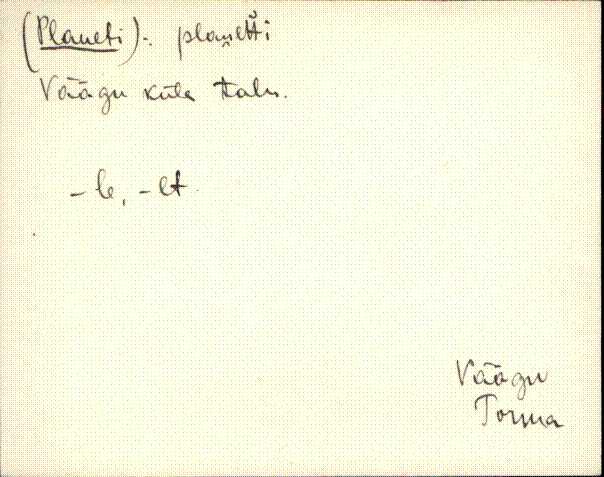 (Planeti): planetti
Väägu küla talu.
-le, -lt.
Väägu
Torma